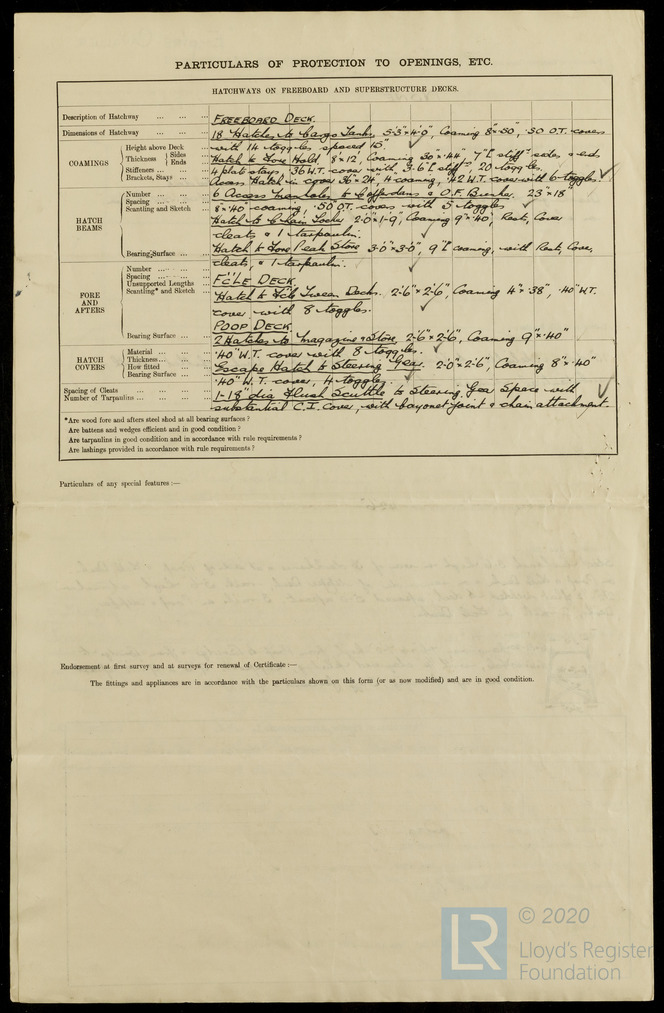 PARTICULARS OF PROTECTION TO OPENINGS, ETC.
HATCHWAYS ON FREEBOARD AND SUPERSTRUCTURE DECKS.
Description of Hatchway ... ... ... FREEBOARD DECK.
Dimensions of Hatchway ... ... ... 18 Hatches to Cargo Tanks 5-3" × 4'-0, Coaming 8" × .50, .50 O.T. covers
COAMINGS
Height above Deck ... with 14 toggles spaced 15".
Thickness Sides ... Ends ... Hatch to Fore Hold 8' × 12', Coaming 30" × .44", 7" stiffs sides & ends
Stiffeners ... 4 plate stays .36 W.T. cover with 3-6" stiffs 20 toggles
Brackets, Stays ... Access Hatch in cover 36 × 24, 4 coaming, .42 W.T. cover with 6 toggles.
HATCH BEAMS
Number ... 6 Access Manholes to Cofferdams & O.F. Bunker. 23" × 18
Spacing ... 8" × .40" coaming, .50 O.T. covers with 5 toggles
Scantling and Sketch Hatch to Chain Locker 2-0" × 1-9", Coaming 9" × .40", Rest, Cover
cleats & 1 tarpaulin.
Bearing Surface ... Hatch to Fore Peak Store 3-0" × 3-0", 9" coaming, with Rest, Cover,
cleats, & 1 tarpaulin.
FORE AND AFTERS
Number ...
Spacing ...
Unsupported Lengths F'C'LE DECK
Scantling* and Sketch Hatch to F'c'le Tween Decks. 2-6" × 2-6", Coaming 4" × .38", .40" W.T.
cover with 8 toggles.
POOP DECK.
Bearing Surface ... 2 Hatches to Magazine & Store, 2-6" × 2-6", Coaming 9" × .40"
HATCH COVERS
Material ... .40" W.T. cover with 8 toggles.
Thickness ...
How fitted Escape Hatch to Steering Gear. 2-0" × 2-6", Coaming 8" × .40"
Bearing Surface ... .40" W.T. cover, 4 toggles.
Spacing of Cleats 1-18" dia Flush Scuttle to Steering Gear Space with
Number of Tarpaulins ... substantial C.I. Cover, with bayonet joint & chain attachment.
*Are wood fore and afters steel shod at all bearing surfaces?
Are battens and wedges efficient and in good condition?
Are tarpaulins in good condition and in accordance with rule requirements?
Are lashings provided in accordance with rule requirements?
Particulars of any special features:—
Endorsement at first survey and at surveys for renewal of Certificate:—
The fittings and appliances are in accordance with the particulars shown on this form (or as now modified) and are in good condition.
LR
© 2020
Lloyd's Register
Foundation